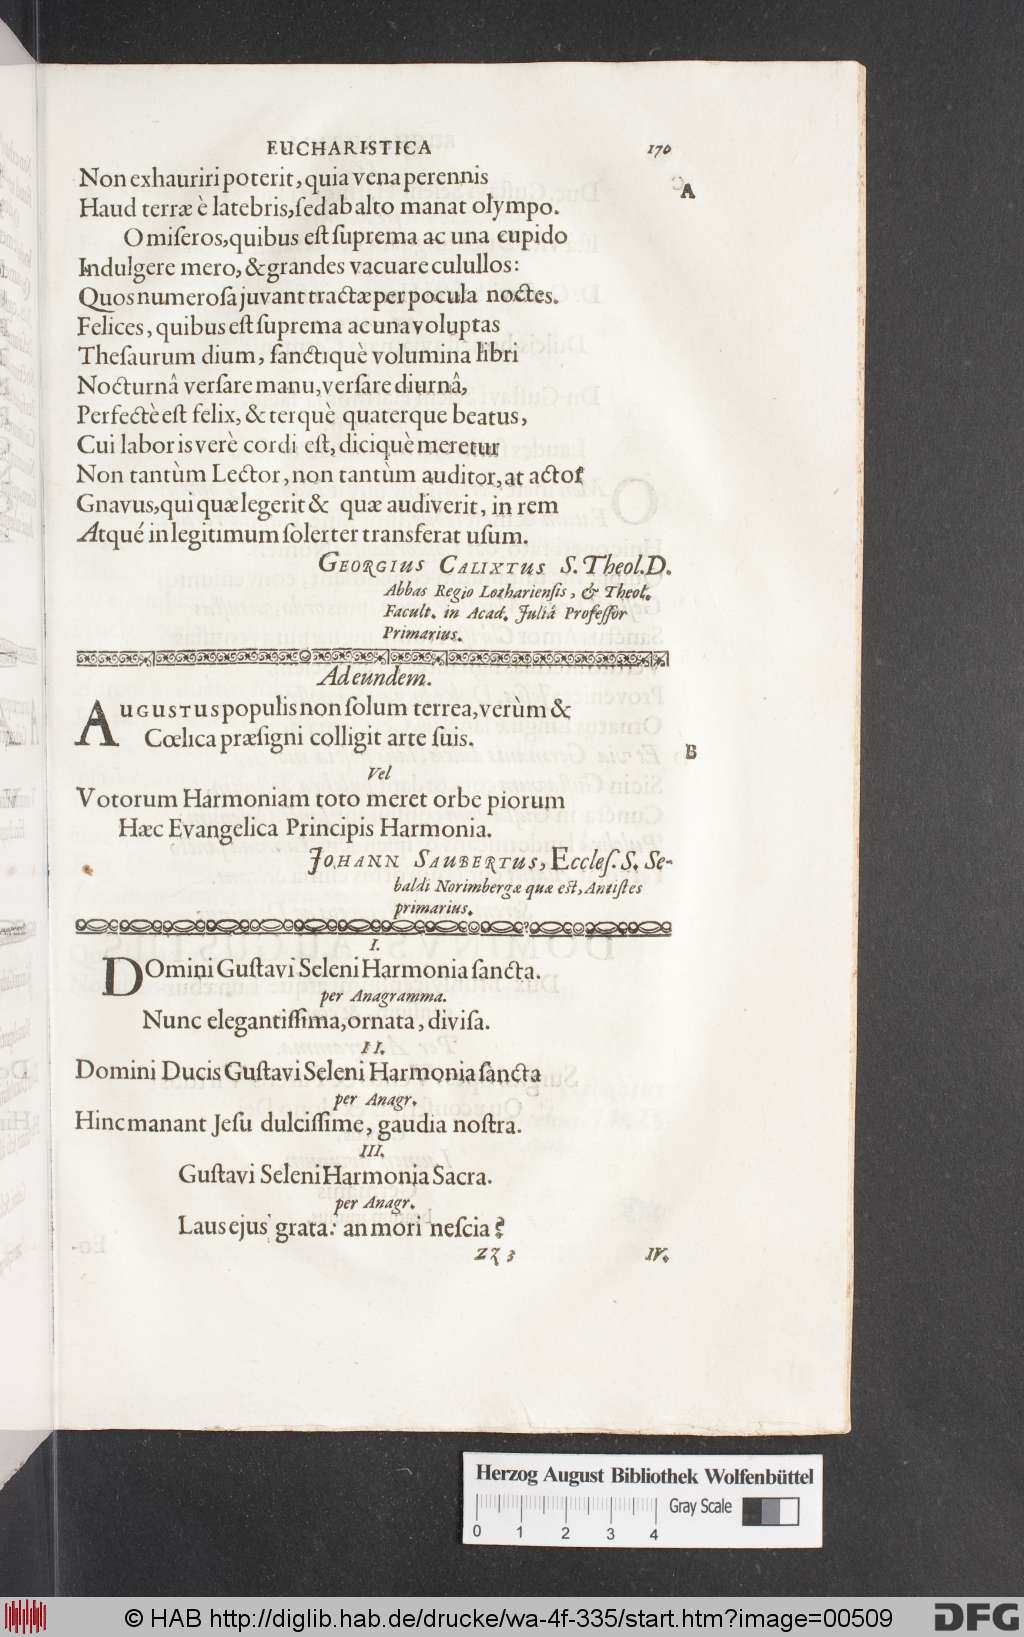 EUCHARISTICA 170
Non exhauriri poterit, quia vena perennis
A
Haud terræ è latebris, ſed ab alto manat olympo.
O miſeros, quibus eſt ſuprema ac una cupido
Indulgere mero, & grandes vacuare culullos:
Quos numeroſa juvant tractæ per pocula noctes.
Felices, quibus eſt ſuprema ac una voluptas
Theſaurum dium, ſanctiquè volumina libri
Nocturnâ verſare manu, verſare diurnâ,
Perfectè eſt felix, & terquè quaterque beatus,
Cui labor is verè cordi eſt, diciquè meretur
Non tantùm Lector, non tantùm auditor, at actor
Gnavus, qui quæ legerit & quæ audiverit, in rem
Atqué in legitimum ſolerter transferat uſum.
GEORGIUS CALIXTUS S. Theol. D.
Abbas Regio Lotharienſis, & Theol.
Facult. in Acad. Juliâ Profeſſor
Primarius.
Ad eundem.
AUGUSTUS populis non ſolum terrea, verùm &
Cœlica præſigni colligit arte ſuis.
B
Vel
Votorum Harmoniam toto meret orbe piorum
Hæc Evangelica Principis Harmonia.
JOHANN SAUBERTUS, Eccleſ. S. Se-
baldi Norimbergæ quæ eſt, Antiſtes
primarius.
I.
DOmini Guſtavi Seleni Harmonia ſancta.
per Anagramma.
Nunc elegantiſſima, ornata, diviſa.
II.
Domini Ducis Guſtavi Seleni Harmonia ſancta
per Anagr.
Hinc manant Jeſu dulciſſime, gaudia noſtra.
III.
Guſtavi Seleni Harmonia Sacra.
per Anagr.
Laus ejus grata: an mori neſcia?
Zz 3 IV.
Herzog August Bibliothek Wolfenbüttel
Gray Scale
0 1 2 3 4
© HAB http://diglib.hab.de/drucke/wa-4f-335/start.htm?image=00509 DFG